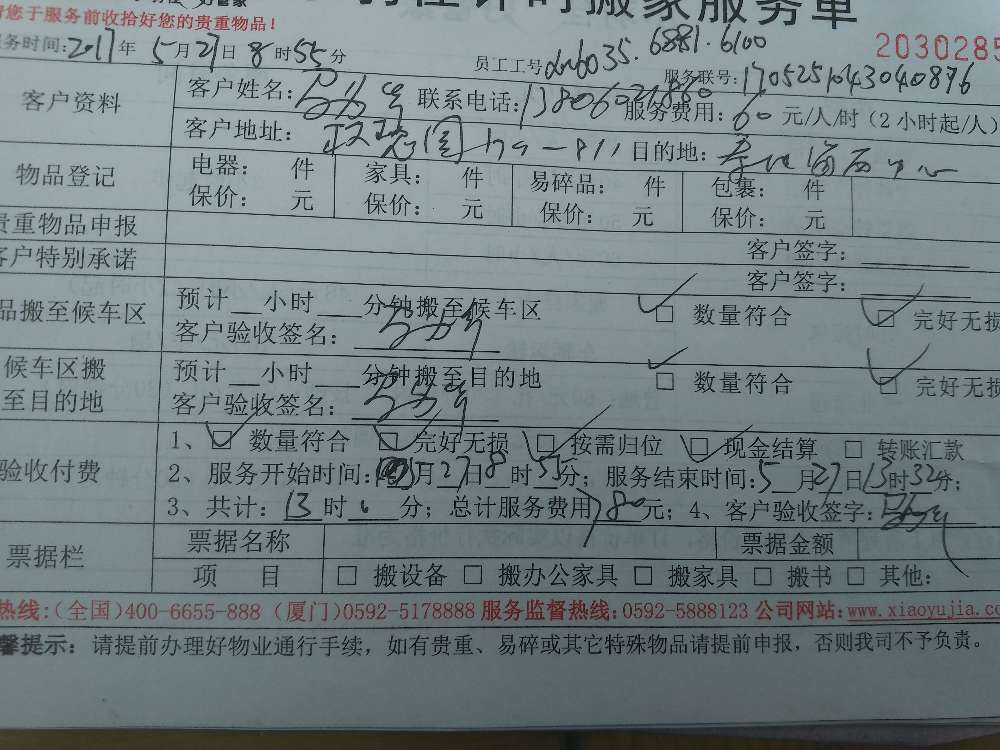 搬家服务单
您于服务前收拾好您的贵重物品!
2030285
服务时间:2017年5月27日8时55分 员工工号 6035. 6881.6100 服务联号:1705251043040876
客户资料 客户姓名: 联系电话: 服务费用:60元/人/时(2小时起/人)
客户地址: 目的地:
物品登记 电器: 件 家具: 件 易碎品: 件 包裹: 件
保价: 元 保价: 元 保价: 元 保价: 元
贵重物品申报 客户签字:
客户特别承诺 客户签字:
品搬至候车区 预计 小时 分钟搬至候车区 ☑ 数量符合 ☑ 完好无损
客户验收签名:
候车区搬至目的地 预计 小时 分钟搬至目的地 ☑ 数量符合 ☑ 完好无损
客户验收签名:
验收付费 1、☑ 数量符合 ☑ 完好无损 ☑ 按需归位 ☑ 现金结算 □ 转账汇款
2、服务开始时间: 月27日8时55分;服务结束时间:5月27日13时32分;
3、共计:13时 分;总计服务费用780元;4、客户验收签字:
票据栏 票据名称 票据金额
项 目 □ 搬设备 □ 搬办公家具 □ 搬家具 □ 搬书 □ 其他:
热线:(全国)400-6655-888 (厦门)0592-5178888 服务监督热线:0592-5888123 公司网站:www.xiaoyujia.co
馨提示:请提前办理好物业通行手续,如有贵重、易碎或其它特殊物品请提前申报,否则我司不予负责。